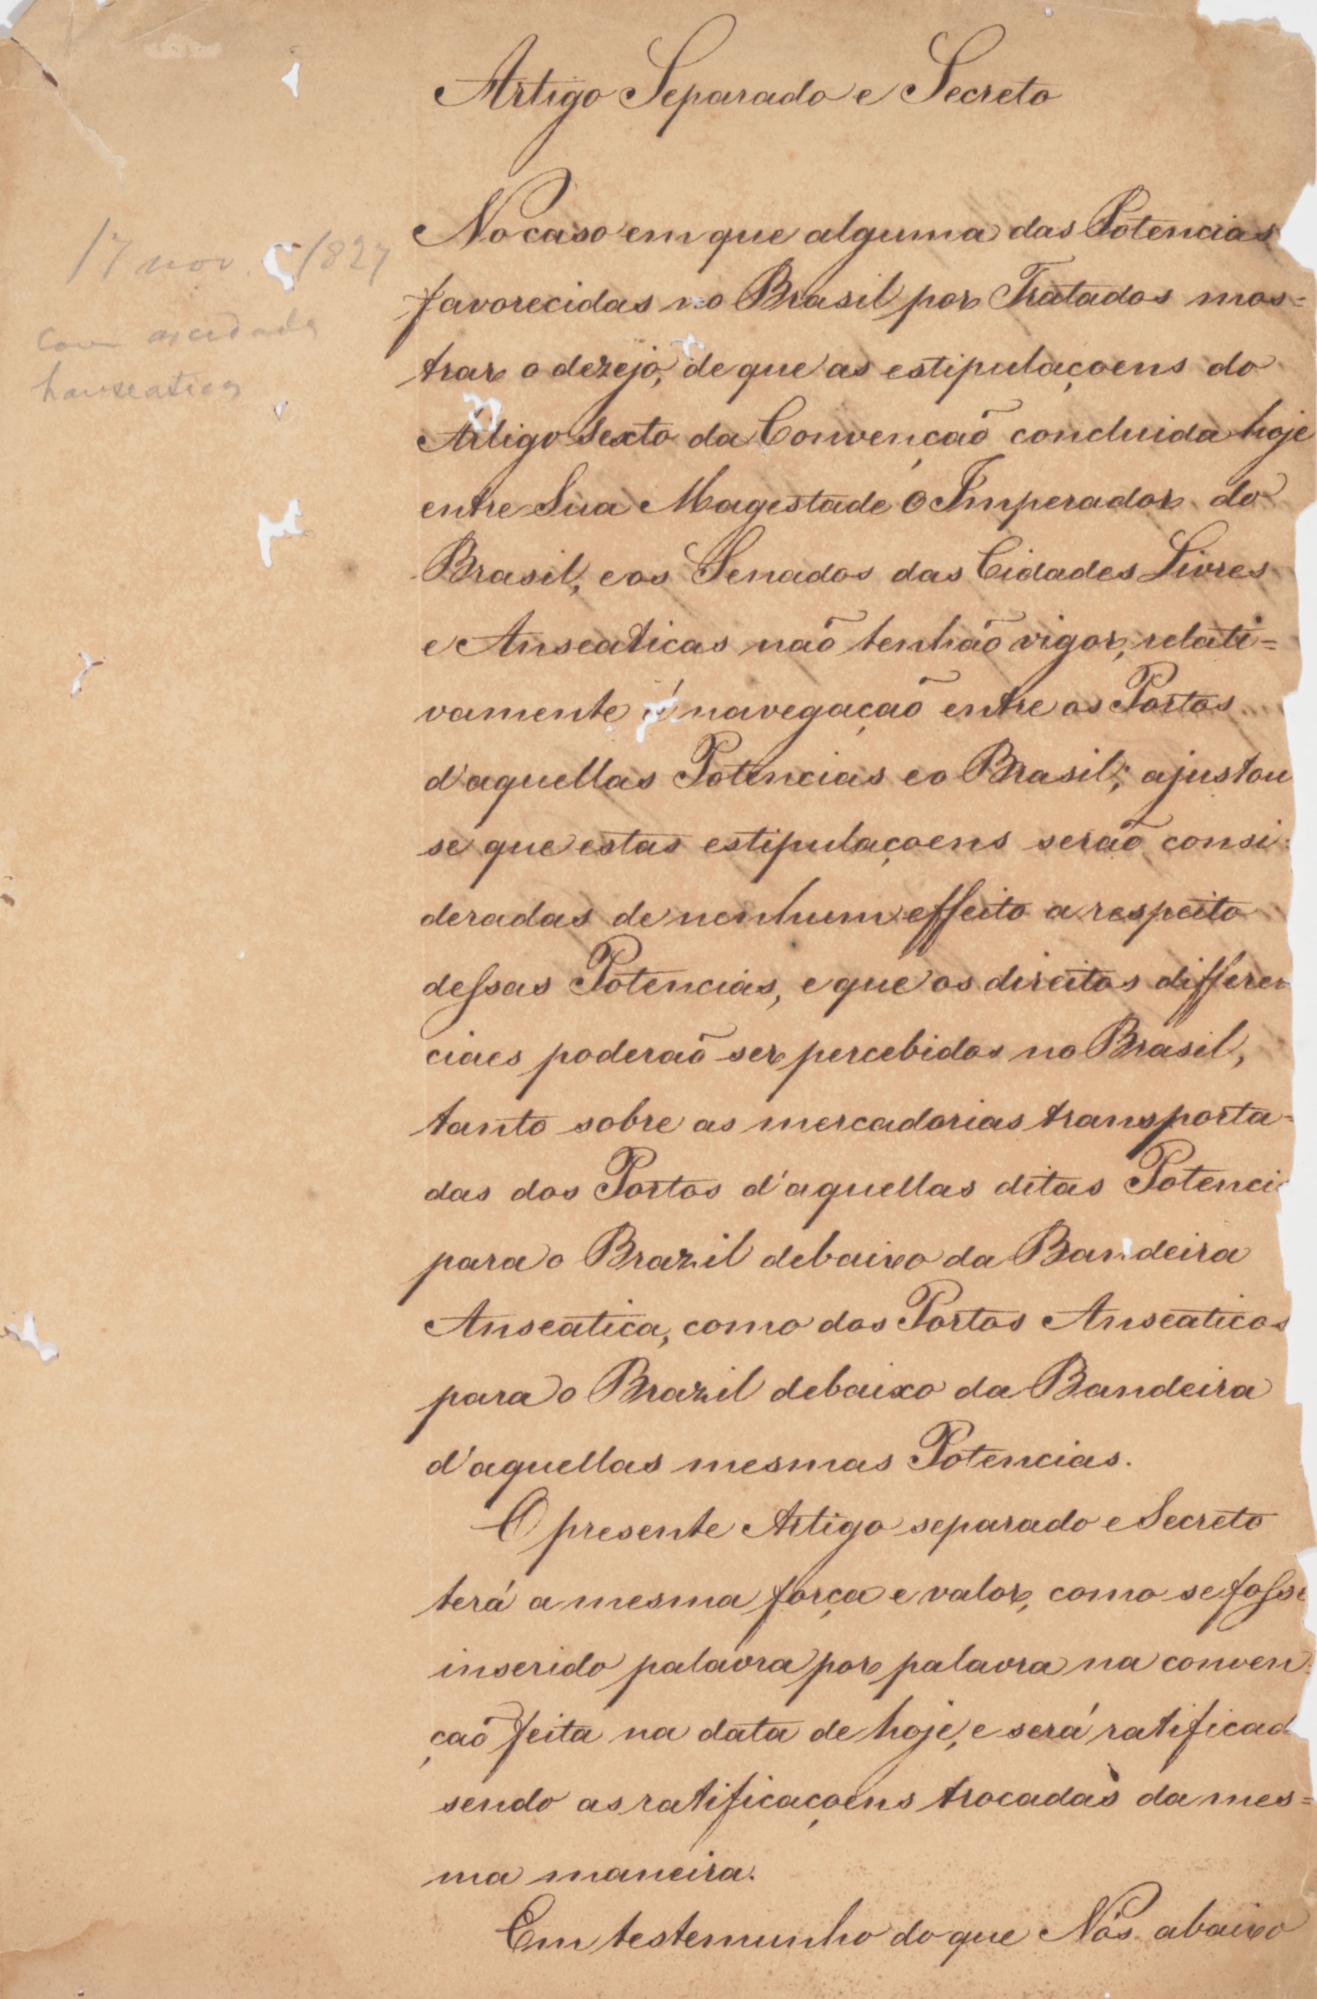 Artigo Separado e Secreto
No caso em que alguma das Potencias
17 nov. 1827
favorecidas no Brasil por Tratados mos=
com as cidades
trar o dezejo, de que as estipulaçoens do
hanseaticas
Artigo Sexto da Convençaõ concluida hoje
entre Sua Magestade O Imperador do
Brasil, e os Senados das Cidades Livres
e Anseaticas naõ tenhaõ vigor, relati=
vamente á navegaçaõ entre os Portos
d'aquellas Potencias e o Brasil; ajustou
se que estas estipulaçoens seraõ consi=
deradas de nenhum effeito a respeito
dessas Potencias, e que os direitos differen
ciaes poderaõ ser percebidos no Brasil,
tanto sobre as mercadorias transporta=
das dos Portos d'aquellas ditas Potenci
para o Brazil debaixo da Bandeira
Anseatica, como dos Portos Anseaticos
para o Brazil debaixo da Bandeira
d'aquellas mesmas Potencias.
O presente Artigo separado e Secreto
terá a mesma força e valor, como se fosse
inserido palavra por palavra na conven=
çaõ feita na data de hoje, e será ratificad
sendo as ratificaçoens trocadas da mes=
ma maneira.
Em testemunho do que Nós abaixo